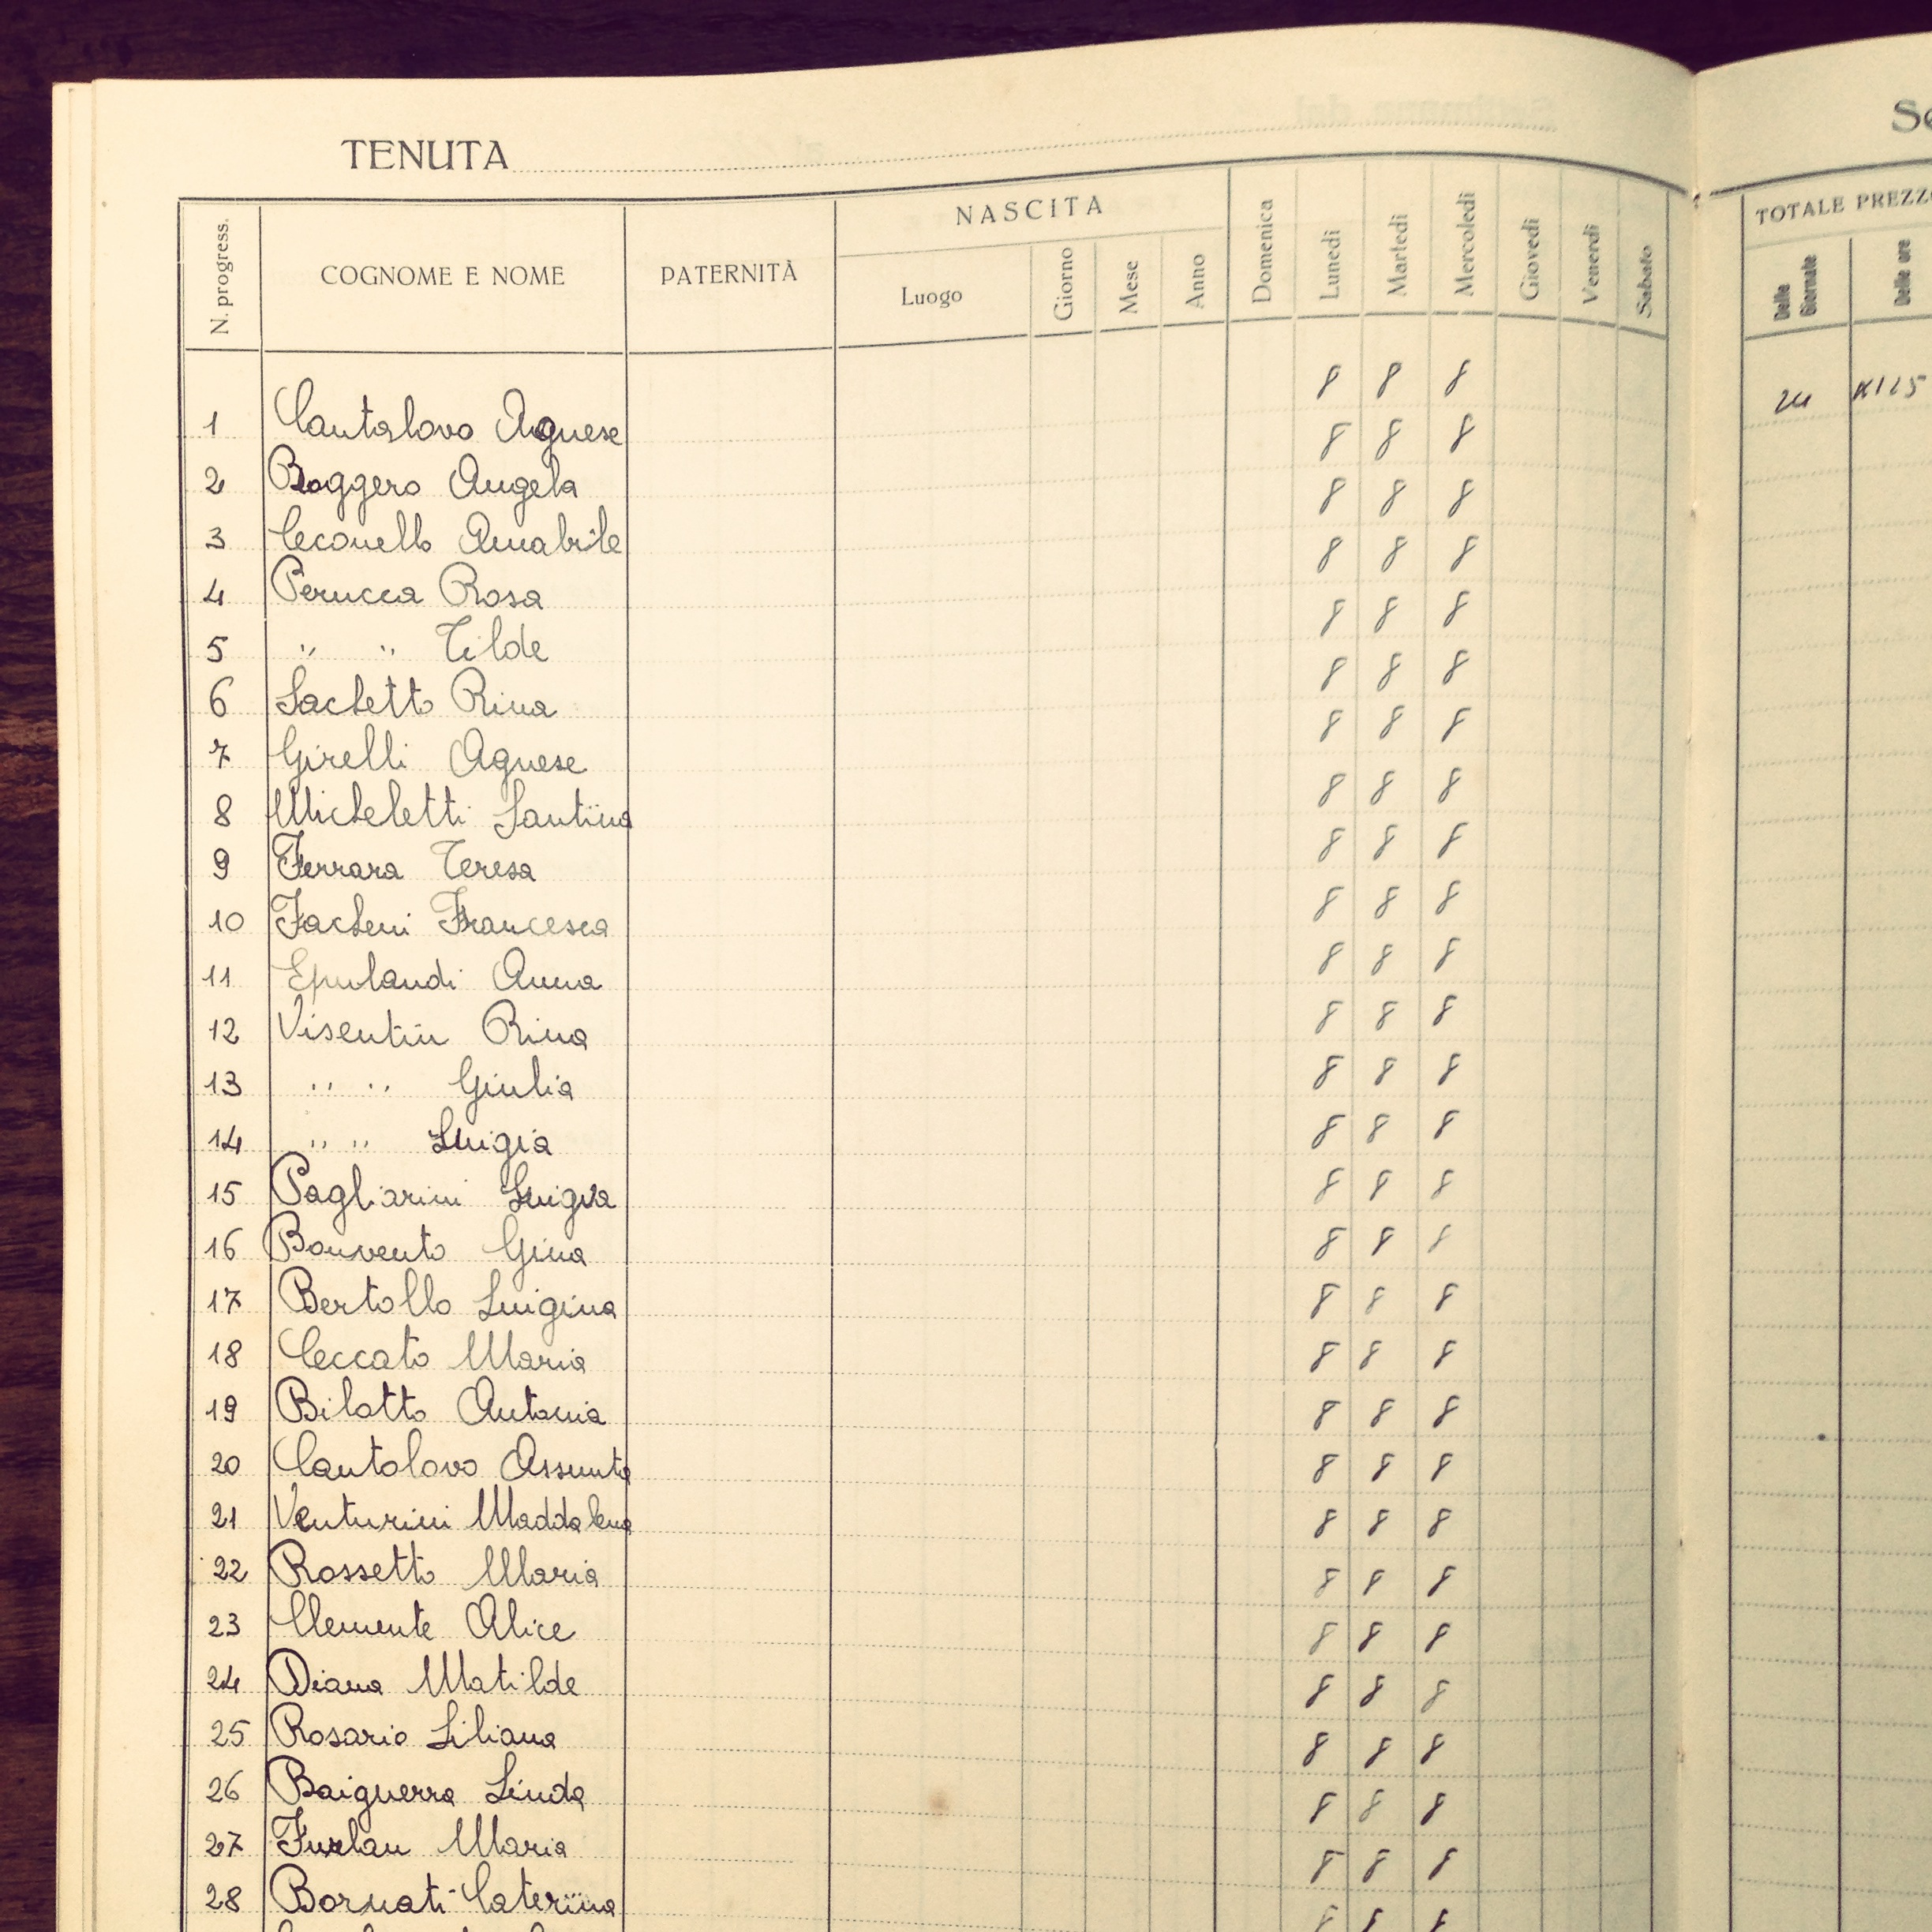 TENUTA
N. progress. COGNOME E NOME PATERNITÀ NASCITA Luogo Giorno Mese Anno Domenica Lunedì Martedì Mercoledì Giovedì Venerdì Sabato
TOTALE PREZZO
Delle Giornate Delle ore
1 Cantalovo Agnese 8 8 8 24
2 Boggero Angela 8 8 8
3 Ceconello Amabile 8 8 8
4 Perucca Rosa 8 8 8
5 " " Tilde 8 8 8
6 Sachetto Rina 8 8 8
7 Girelli Agnese 8 8 8
8 Micheletti Santina 8 8 8
9 Ferrara Teresa 8 8 8
10 Facheni Francesca 8 8 8
11 Anna 8 8 8
12 Visentin Rina 8 8 8
13 " " Giulia 8 8 8
14 " " Luigia 8 8 8
15 Pagliarini Luigia 8 8 8
16 Bonvento Gina 8 8 8
17 Bertollo Luigina 8 8 8
18 Ceccato Maria 8 8 8
19 Bilotto Antonia 8 8 8
20 Cantolovo Assunta 8 8 8
21 Venturini Maddalena 8 8 8
22 Rossetto Maria 8 8 8
23 Clemente Alice 8 8 8
24 Diana Matilde 8 8 8
25 Rosario Liliana 8 8 8
26 Baiguerra Linda 8 8 8
27 Furlan Maria 8 8 8
28 Bornati Caterina 8 8 8